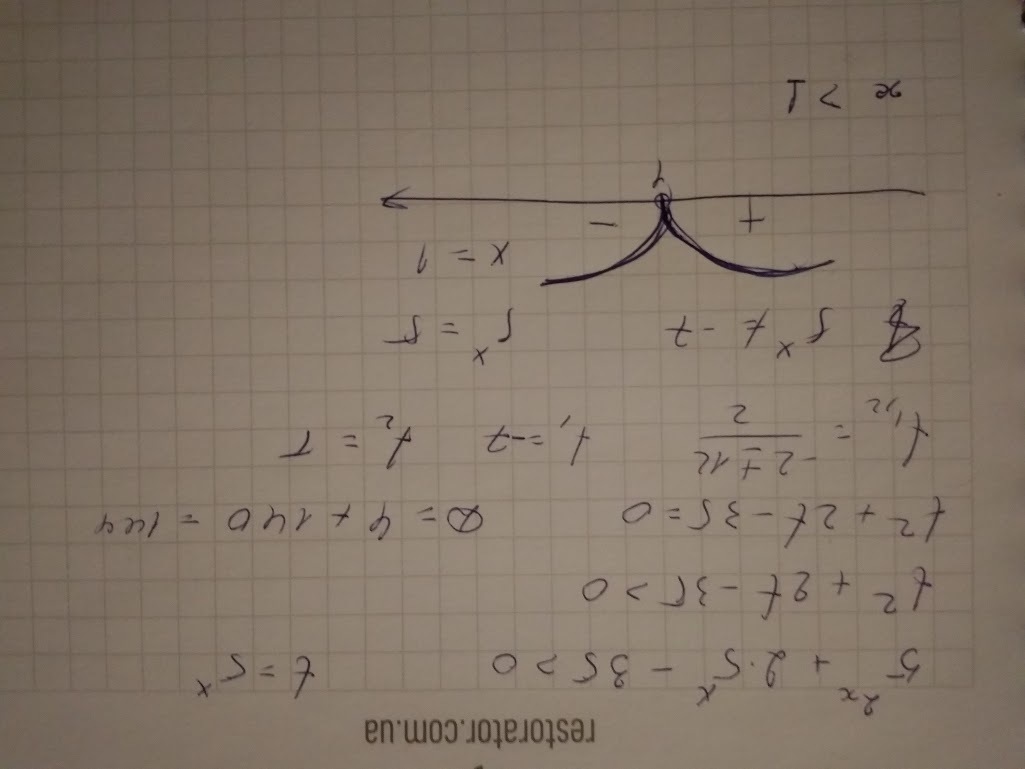 restorator.com.ua
5^{2x} + 2·5^x − 35 > 0 t = 5^x
t² + 2t − 35 > 0
t² + 2t − 35 = 0 D = 4 + 140 = 144
t_{1,2} = (−2 ± 12)/2 t₁ = −7 t₂ = 5
5^x ≠ −7 5^x = 5
x = 1
+ −
1
x > 1